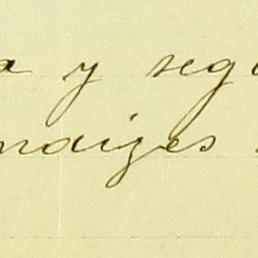 a y seg
maizes